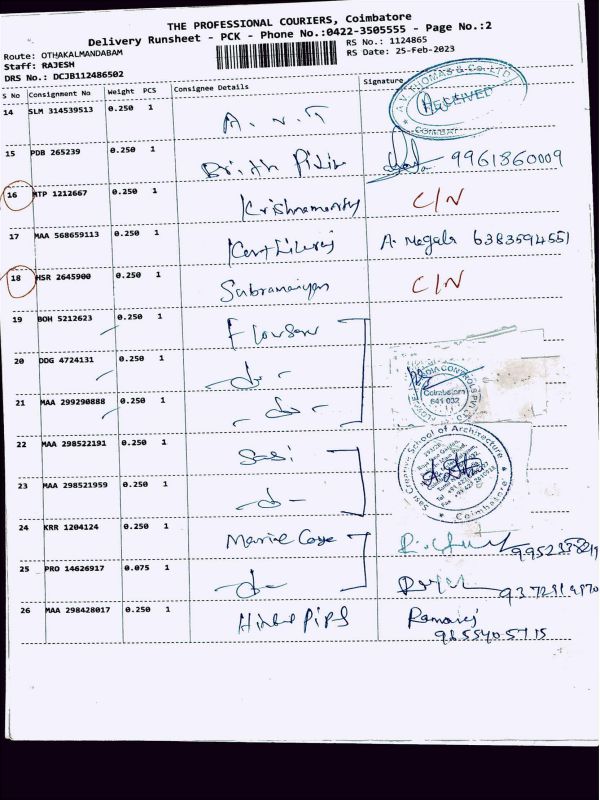 THE PROFESSIONAL COURIERS, Coimbatore
Delivery Runsheet - PCK - Phone No.:0422-3505555 - Page No.:2
Route: OTHAKALMANDABAM
RS No.: 1124865
Staff: RAJESH
RS Date: 25-Feb-2023
DRS No.: DCJB112486502
S No Consignment No Weight PCS Consignee Details Signature
14 SLM 314539513 0.250 1 A. V. T
A.V. THOMAS & Co. LTD. RECEIVED
15 PDB 265239 0.250 1 9961860009
16 MTP 1212667 0.250 1 Krishnamoorthy C/N
17 MAA 568659113 0.250 1 A. Megala 6383594551
18 HSR 2645900 0.250 1 Subramaniyan C/N
19 BOH 5212623 0.250 1
20 DDG 4724131 0.250 1 -do-
MEDIA CONTROLS PVT LTD
Coimbatore
641 032
21 MAA 299290888 0.250 1 -do-
22 MAA 298522191 0.250 1 Sasi
Sasi Creative School of Architecture
Coimbatore
23 MAA 298521959 0.250 1 -do-
24 KRR 1204124 0.250 1
25 PRO 14626917 0.075 1 -do-
26 MAA 298428017 0.250 1 Ramaraj